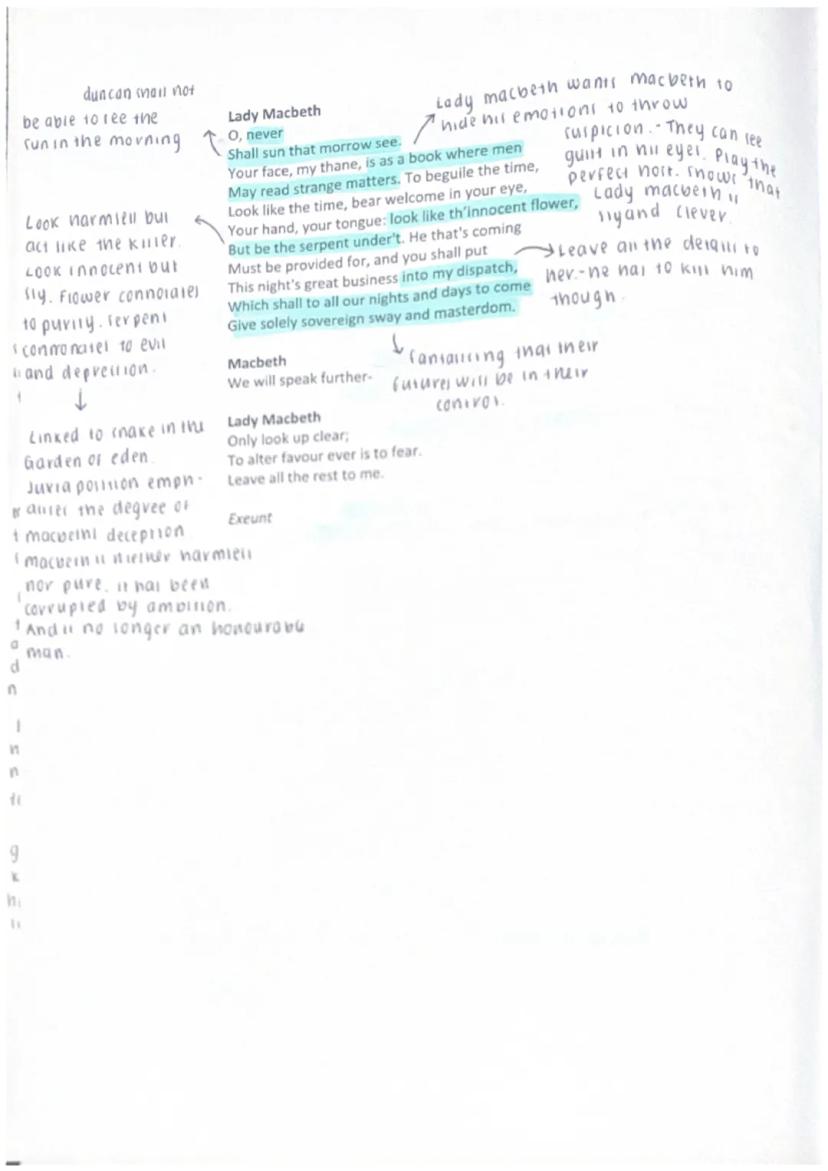 duncan shall not
be able to see the
sun in the morning
Lady macbeth wants macbeth to
hide his emotions to throw
suspicion. - They can see
guilt in his eyes. Play the
perfect host. Shows that
Lady macbeth is
sly and clever.
Lady Macbeth
O, never
Shall sun that morrow see.
Your face, my thane, is as a book where men
May read strange matters. To beguile the time,
Look like the time, bear welcome in your eye,
Your hand, your tongue: look like th'innocent flower,
But be the serpent under't. He that's coming
Must be provided for, and you shall put
This night's great business into my dispatch,
Which shall to all our nights and days to come
Give solely sovereign sway and masterdom.
Look harmless but
act like the killer.
Look innocent but
sly. Flower connotates
to purity. Serpent
connonates to evil
and depression.
Leave all the details to
her. - he has to kill him
though.
fantasising that their
futures will be in their
control.
Macbeth
We will speak further-
Lady Macbeth
Only look up clear;
To alter favour ever is to fear.
Leave all the rest to me.
Exeunt
Linked to snake in the
Garden of eden.
Juxtaposition emph-
asises the degree of
macbeths deception
macbeth is niether harmless
nor pure. it has been
corrupted by ambition.
And is no longer an honourable
man.